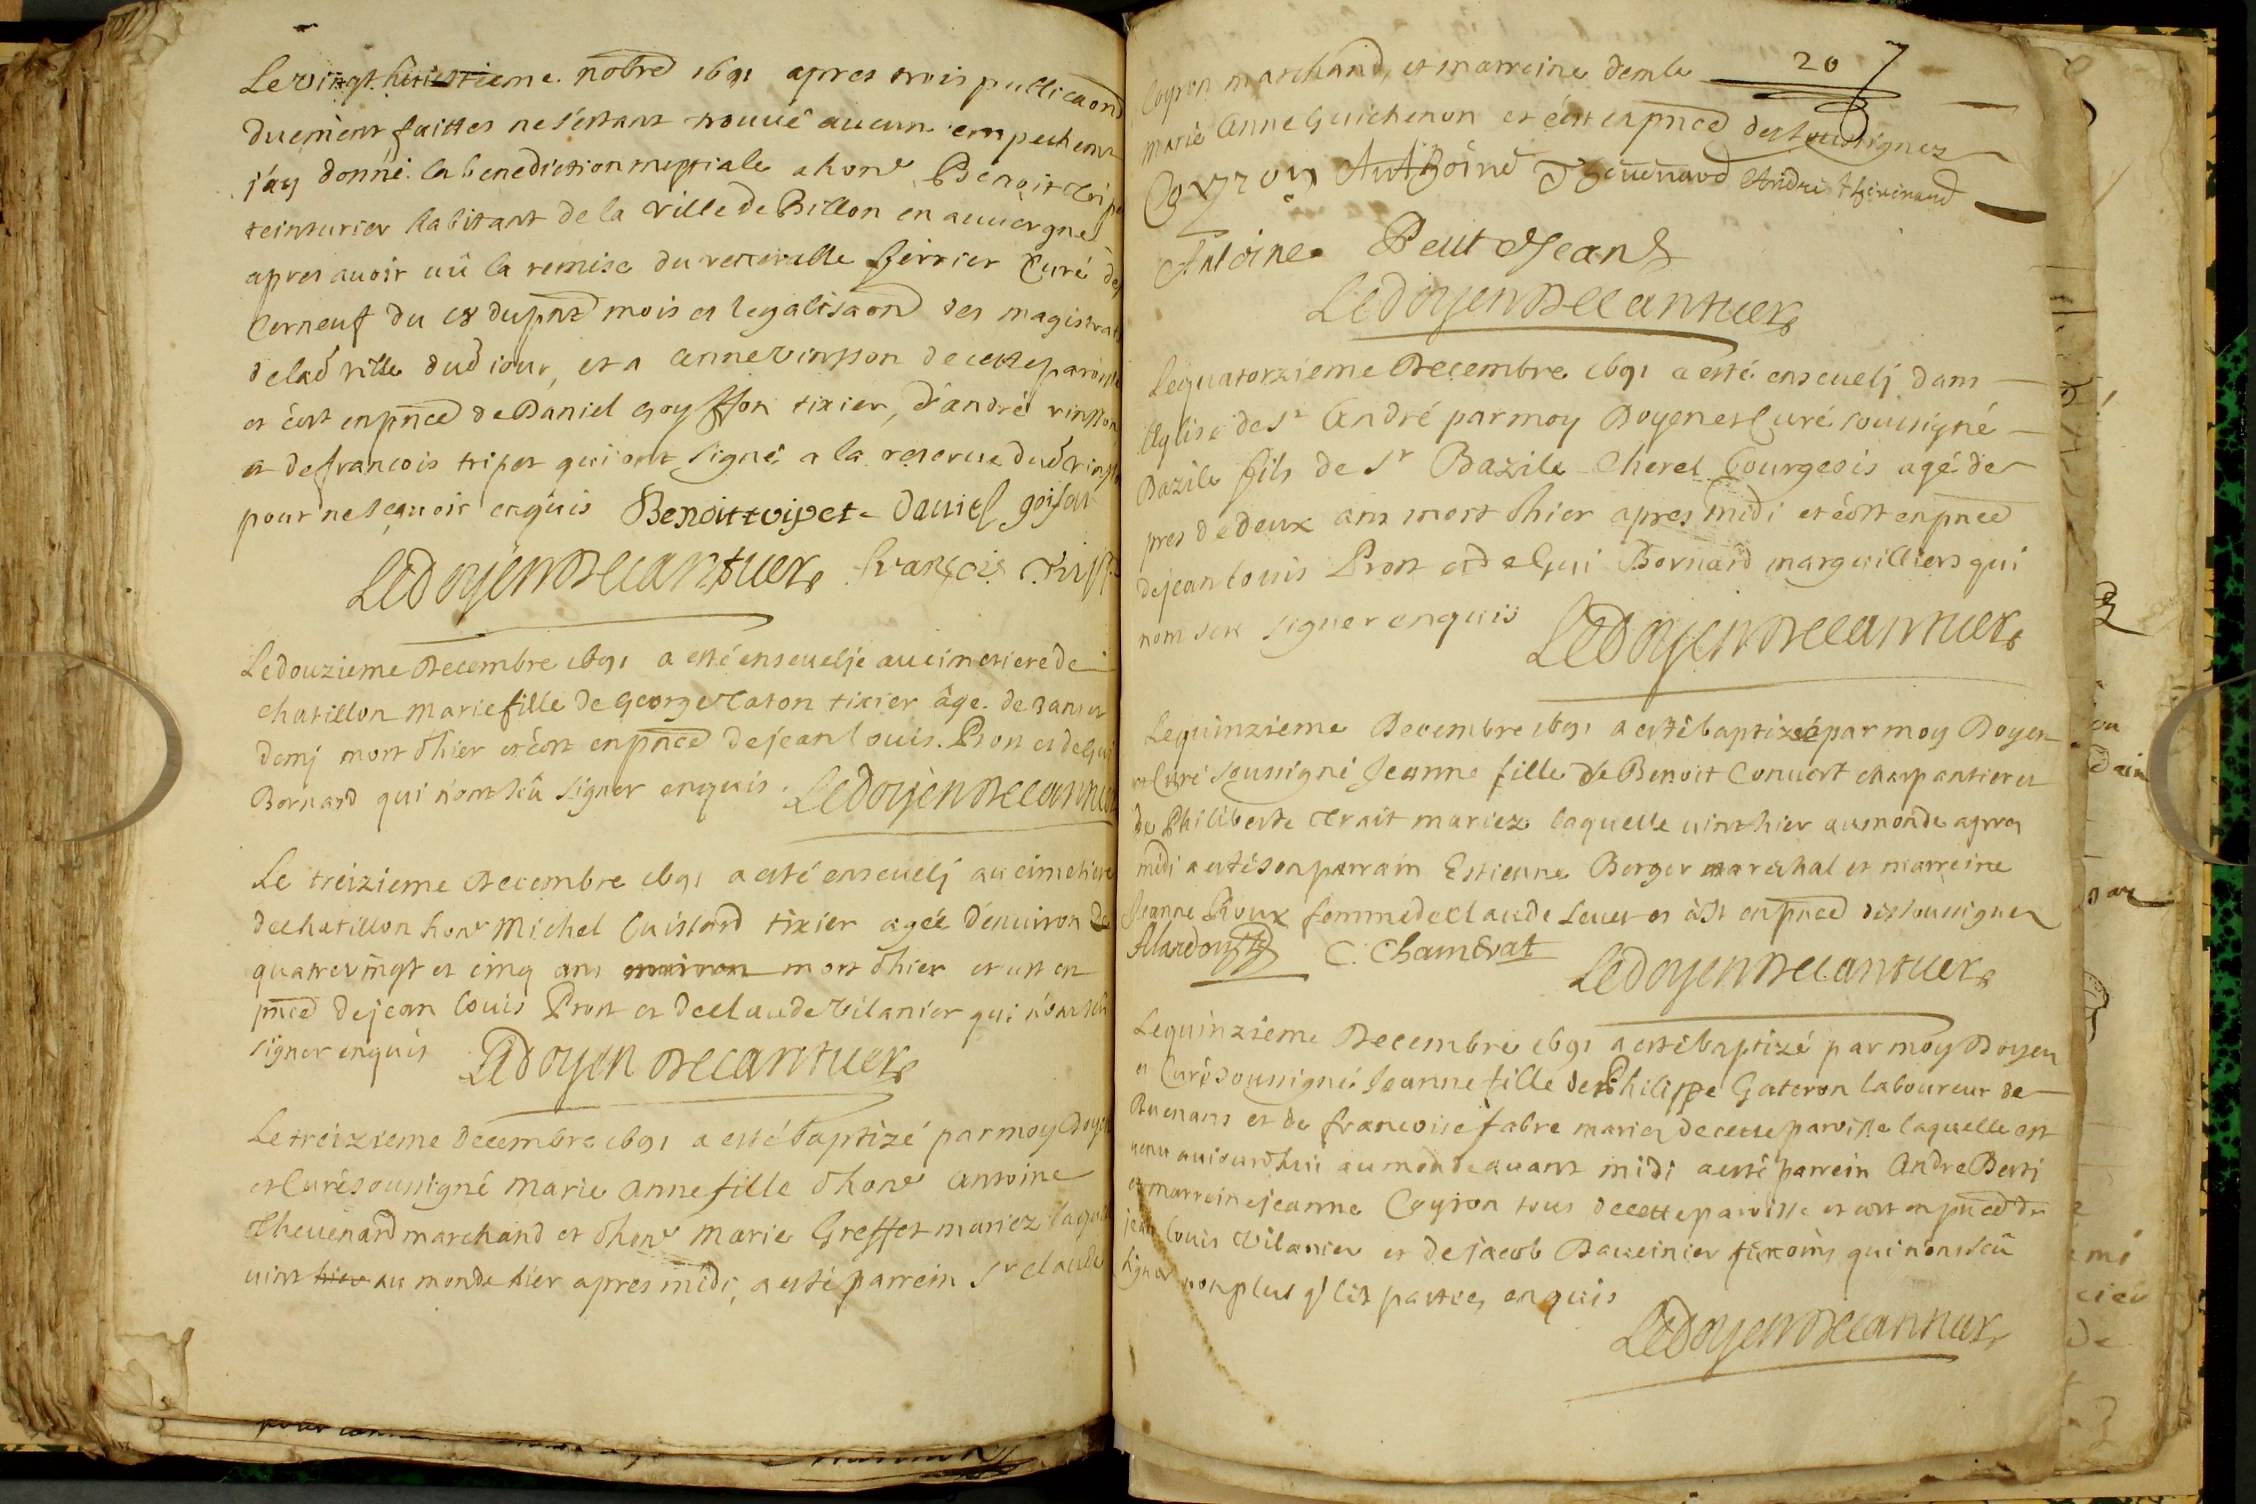 Le vingt huictieme nobre 1691 apres trois publicaons
duement faittes ne s'estant trouué aucun empechemt
j'ay donné la benediction nuptiale a hone Benoit Tripet
teinturier habitant de la ville de Billon en auuergne
apres auoir uû la remise du venerable ferrier Curé de
Cerneuf du 18 du pnt mois et legalisaon des magistrats
de lad ville dud iour, et a anne Vinsson de cette paroisse
et c'est en pnce de Daniel Goysson tixier, d'andré vinsson
et de francois tripet qui ont signé a la reserue dud Vinsson
pour ne sçauoir enquis Benoit tripet Daniel goison
Ledoyen Decantuer françois Trip
Le douzieme Decembre 1691 a esté enseuelie au cimetiere de
chatillon marie fille de george Caton tixier âge de 3 ans et
demj mort d'hier et c'est en pnce de jean louis Pron et de Gui
Bornard qui n'ont sçû signer enquis. Ledoyen Decantuer
Le treizieme Decembre 1691 a esté enseuelj au cimetiere
de chatillon hone Michel Cuissard tixier ageé d'enuiron de
quatrevingt et cinq ans mort d'hier et est en
pnce de jean louis Pron et de claude Vilanier qui n'ont sçû
signer enquis Ledoyen Decantuer
Le treizieme decembre 1691 a esté baptizé par moy Doyen
et Curé soussigné Marie anne fille d'hone antoine
Theuenard marchand et d'hone Marie Greffet mariez laquelle
uint hier au monde hier apres midi, a esté parrein Sr claude
207
Coyron marchand, et marreine demle
Marie Anne Guichenon et c'est en pnce des soussignez
Coyron Anthoine Theuenard André theuenard
Antoine Petit Jean
Ledoyen Decantuer
Le quatorzieme Decembre 1691 a esté enseuelj dans
l'Eglise de St André par moy Doyen et Curé soussigné
Bazile fils de Sr Bazile Cheret bourgeois agé de
pres de deux ans mort d'hier apres midi et c'est en pnce
de jean louis Pron et de Gui Bornard marguilliers qui
n'ont sçu signer enquis Ledoyen Decantuer
Le quinzieme Decembre 1691 a esté baptizeé par moy Doyen
et Curé soussigné Jeanne fille de Benoit Conuert charpantier et
de Philiberte Trait mariez laquelle uint hier au monde apres
midi a esté son parrain Estienne Berger mareschal et marreine
Jeanne Rioux femme de claude Leuet et c'est en pnce des soussignez
Alardon C. Chamerat Ledoyen Decantuer
Le quinzieme Decembre 1691 a esté baptizé par moy Doyen
et Curé soussigné Jeanne fille de Philippe Gateron laboureur de
Buenans et de francoise fabre mariez de cette paroisse laquelle est
uenu auiourd'hui au monde auant midi a esté parrein André Berti
et marreine jeanne Coyron tous de cette paroisse et c'est en pnce de
jean louis Vilanier et de jacob Baueinier témoins qui n'ont sçû
signer non plus q' les parties enquis
Ledoyen Decantuer